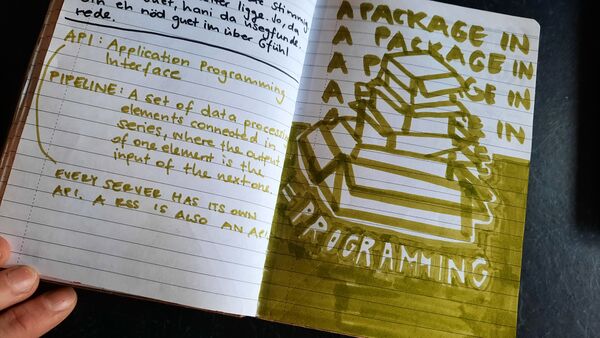 ligge. Jo, da
guet, hani da usegfunde.
eh nöd guet im über Gfühl
rede.
API: Application Programming
Interface
PIPELINE: A set of data processing
elements connected in
series, where the output
of one element is the
input of the next one.
EVERY SERVER HAS ITS OWN
API. A RSS IS ALSO AN API
A PACKAGE IN
A PACKAGE IN
A PACKAGE IN
A PACKAGE IN
= PROGRAMMING